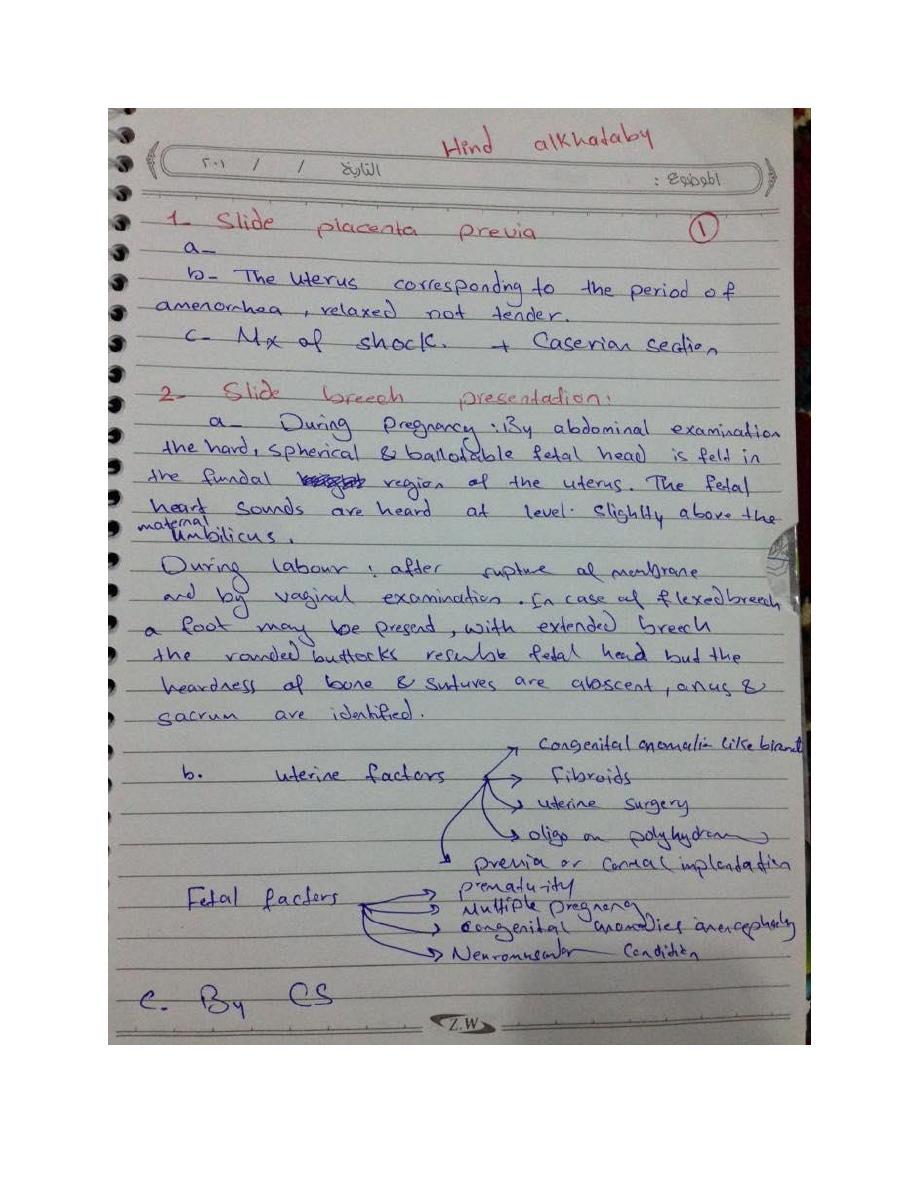 Hind alkhataby
الموضوع : التاريخ / / ٢٠١
1- Slide placenta previa ①
a-
b- The uterus correspondng to the period of
amenorrhea, relaxed not tender.
c- Mx of shock. + Caserian section
2- Slide breech presentation:
a- During pregnancy : By abdominal examination
the hard, spherical & ballotable fetal head is felt in
the fundal region of the uterus. The fetal
heart sounds are heard at level slightly above the
maternal
umbilicus.
During labour : after rupture of membrane
and by vaginal examination. In case of flexed breech
a foot may be present, with extended breech
the rounded buttocks resumble fetal head but the
heardness of bone & sutures are abscent, anus &
sacrum are identified.
b. uterine factors
congenital anomalis like
Fibroids
uterine surgery
oligo or polyhydram
previa or corneal implantation
Fetal factors
prematurity
Multiple pregnancy
congenital anomalies anencephaly
Neuromuscular condition
c. By CS
Z.W